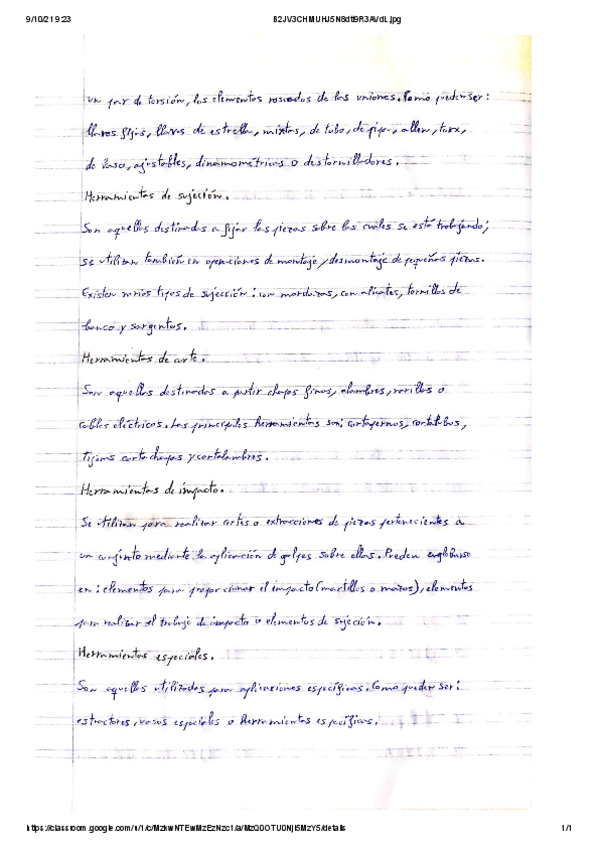 9/10/21 9:23
B2JV3CHMUHJ5N8dtt9R3AVdL.jpg
un par de torsión, los elementos roscados de las uniones. Como pueden ser:
llaves fijas, llaves de estrella, mixtas, de tubo, de pipa, allen, torx,
de vaso, ajustables, dinamométricas o destornilladores.
Herramientas de sujeción.
Son aquellas destinadas a fijar las piezas sobre las cuales se está trabajando;
se utilizan también en operaciones de montaje/desmontaje de pequeñas piezas.
Existen varios tipos de sujección: con mordazas, con alicates, tornillos de
banco y sargentos.
Herramientas de corte.
Son aquellas destinadas a partir chapas finas, alambres, varillas o
cables eléctricos. Las principales herramientas son: cortapernos, cortatubos,
tijeras corta chapas y cortalambres.
Herramientas de impacto.
Se utilizan para realizar cortes o extracciones de piezas pertenecientes a
un conjunto mediante la aplicación de golpes sobre ellas. Pueden englobarse
en: elementos para proporcionar el impacto (martillos o mazos), elementos
para realizar el trabajo de impacto o elementos de sujeción.
Herramientas especiales.
Son aquellas utilizadas para aplicaciones específicas. Como pueden ser:
extractores, vasos especiales o herramientas específicas.
1/1